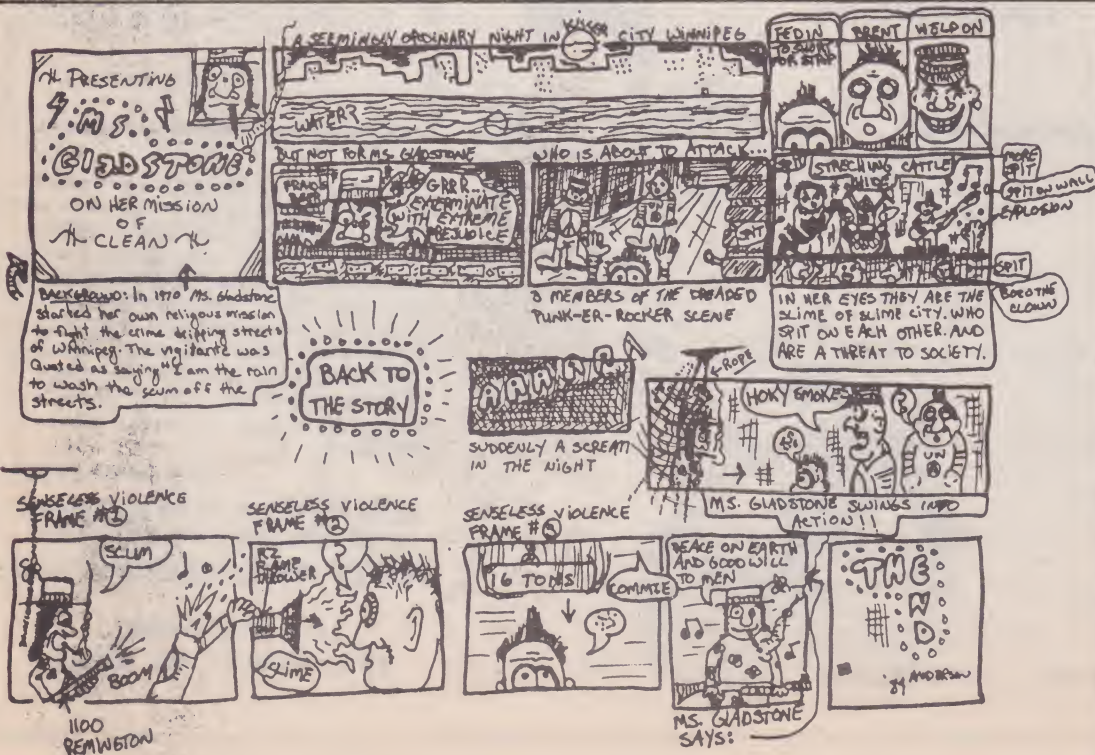 PRESENTING
MS.
GLADSTONE
ON HER MISSION
OF
CLEAN
BACKGROUND: In 1970 Ms. Gladstone
started her own religous mission
to fight the crime dripping streets
of Winnipeg. The vigilante was
Quoted as saying "I am the rain
to wash the scum off the
streets.
A SEEMINGLY ORDINARY NIGHT IN
CITY WINNIPEG
WATER?
BUT NOT FOR MS. GLADSTONE
GRRR...
EXTERMINATE
WITH EXTREME
PREJUDICE
WHO IS ABOUT TO ATTACK...
3 MEMBERS OF THE DREADED
PUNK-ER-ROCKER SCENE
FEDIN
FOR STRIP
BRENT
WELDON
SPIT
STRECHING CATTLE
HIDE
MORE
SPIT
SPIT ON WALL
EXPLOSION
SPIT
BOZO THE
CLOWN
IN HER EYES THEY ARE THE
SLIME OF SLIME CITY. WHO
SPIT ON EACH OTHER. AND
ARE A THREAT TO SOCIETY.
BACK TO
THE STORY
SUDDENLY A SCREAM
IN THE NIGHT
ROPE
HOKY SMOKES
UN
MS. GLADSTONE SWINGS INTO
ACTION!!
SENSELESS VIOLENCE
FRAME #1
SCUM
BOOM
1100
REMINGTON
SENSELESS VIOLENCE
FRAME #2
?
FLAME
THROWER
SLIME
SENSELESS VIOLENCE
FRAME #3
16 TONS
COMMIE
?
PEACE ON EARTH
AND GOOD WILL
TO MEN
MS. GLADSTONE
SAYS:
THE
END
'84 ANDERSON